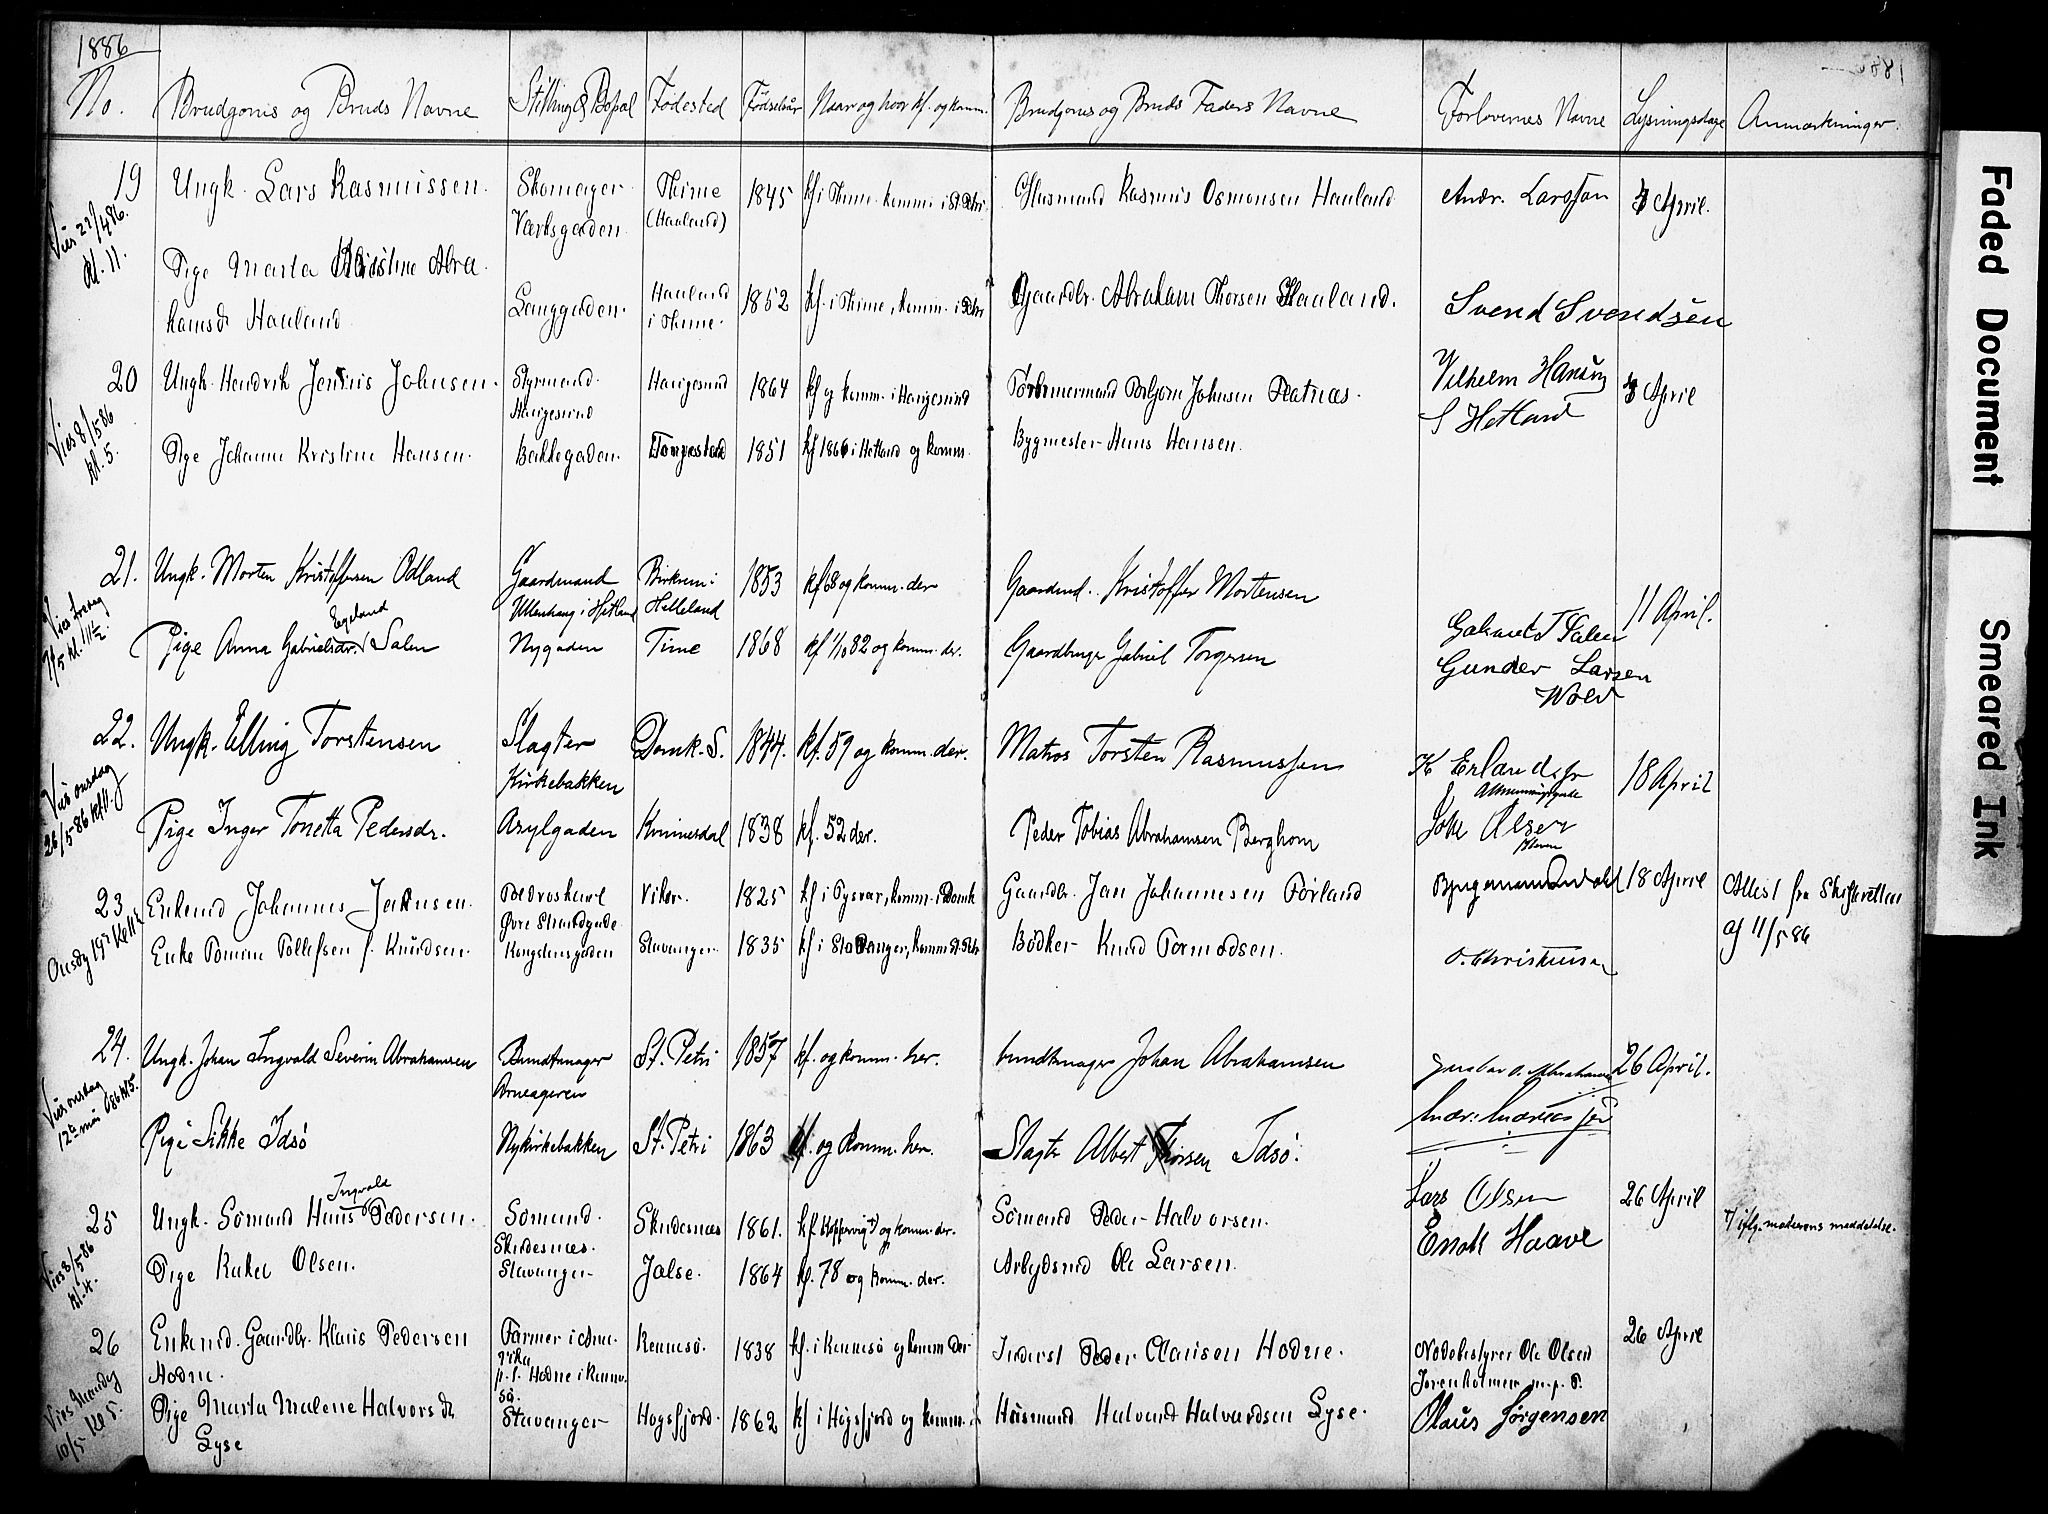 1886
No. Brudgoms og Bruds Navne Stilling & Bopæl Fødested Fødselsår Naar og hvor kf. og komm. Brudgoms og Bruds Faders Navne Forlovernes Navne Lysningsdage Anmærkninger.
19 Ungk. Lars Rasmussen. Skomager Thime 1845 kf i Thime. komm. i St. Petri. Husmand Rasmus Osmonsen Hauland Andr. Larssen 4 April.
Vies 22/4 86. Verksgaden (Hauland)
kl. 11. Pige Marta Kristine Abra-
hamsdr Hauland Langgaden. Hauland 1852 kf. i Thime, komm. i Petri Gaardbr. Abraham Thorsen Hauland. Svend Svendsen
i Thime.
20 Ungk. Hendrik Jenius Johnsen. Styrmand. Haugesund 1864 kf og komm. i Haugesund Tømmermand Torbjørn Johnsen Ratnæs. Vilhelm Hansen 4 April
Vies 8/5 86 Haugesund S Hetland
kl. 5. Pige Johanne Kristine Hansen. Bakkegaden. Torgestad 1851 kf 1866 i Hetland og komm. Bygmester Hans Hansen.
21. Ungk. Morten Kristoffersen Odland Gaardmand Birkrem i 1853 kf 68 og komm. der Gaardmd. Kristoffer Mortensen 11 April.
Vies fredag Ullenhaug i Hetland Helleland
7/5 kl. 11½ Egeland
Pige Anna Gabrielsdr. Salen Nygaden Time 1868 kf 1/10 82 og komm. der. Gaardbruger Gabriel Torgersen Gabriel T Salen
Gunder Larsen
Wold
22. Ungk. Elling Torstensen Slagter Domk. S. 1844. kf. 59 og komm. der. Matros Torsten Rasmussen K Erlandsen 18 April
Vies onsdag Kirkebakken Allmenningsgade
26/5 86 kl 11. Pige Inger Tonetta Pedersdr. Asylgaden Kvinesdal 1838 kf. 52 der. Peder Tobias Abrahamsen Berghom Joh Olsen
23 Enkemd Johannes Jansen. Politivoskarl Vikør. 1825 kf i Tysvær, komm. i Domk Gaardbr. Jan Johannesen Førland 18 April Attest fra Skifteretten
Øvre Strandgade
Onsdg 19de Kl 11½ Enke Tomine Tollefsen f. Knudsen. Kongstensgaden Stavanger 1835 kf i Stavanger, komm St. Petri Bødker Knud Tormodsen. O. Christensen af 11/5 86
24. Ungk. Johan Ingvald Severin Abrahamsen Bundtmager St. Petri 1857 kf. og komm. her. bundtmager Johan Abrahamsen Gustav A. Abrahamsen 26 April.
Vies onsdag Arneageren
12te mai 86 kl 5. Pige Sikke Idsø Nykirkebakken St. Petri 1863 kf. og komm. her. Slagter Albert Thorsen Idsø. Andr. Andreassen
Ingvald
25 Ungk. Sømand Hans Pedersen. Sømand. Skudesnæs 1861. kf. Kopervig †) og komm. der. Sømand Peder Halvorsen. Lars Olsen 26 April †) iflg. moderens meddelelse.
Vies 8/5 86 Skudesnæs. Enok Haave
kl. 4. Pige Rakel Olsen. Stavanger Jælse. 1864 kf. 78 og komm. der. Arbejdsmd Ole Larsen.
26 Enkemd. Gaardbr. Klaus Pedersen Farmer i Ame- Rennesø. 1838 kf. i Rennesø og komm der Inderst Peder Clausen Hodne. Nodebestyrer Ole Olsen 26 April
Hodne. rika
p. t. Hodne i Renne- Jorenholmen m. p. P.
Vies Mandg sø.
10/5 Kl 5. Pige Marta Malene Halvorsdr Stavanger Høgsfjord. 1862 kf i Høgsfjord og komm. Husmand Halvard Halvardsen Lyse. Olaus Jørgensen
Lyse
Faded Document
Smeared Ink